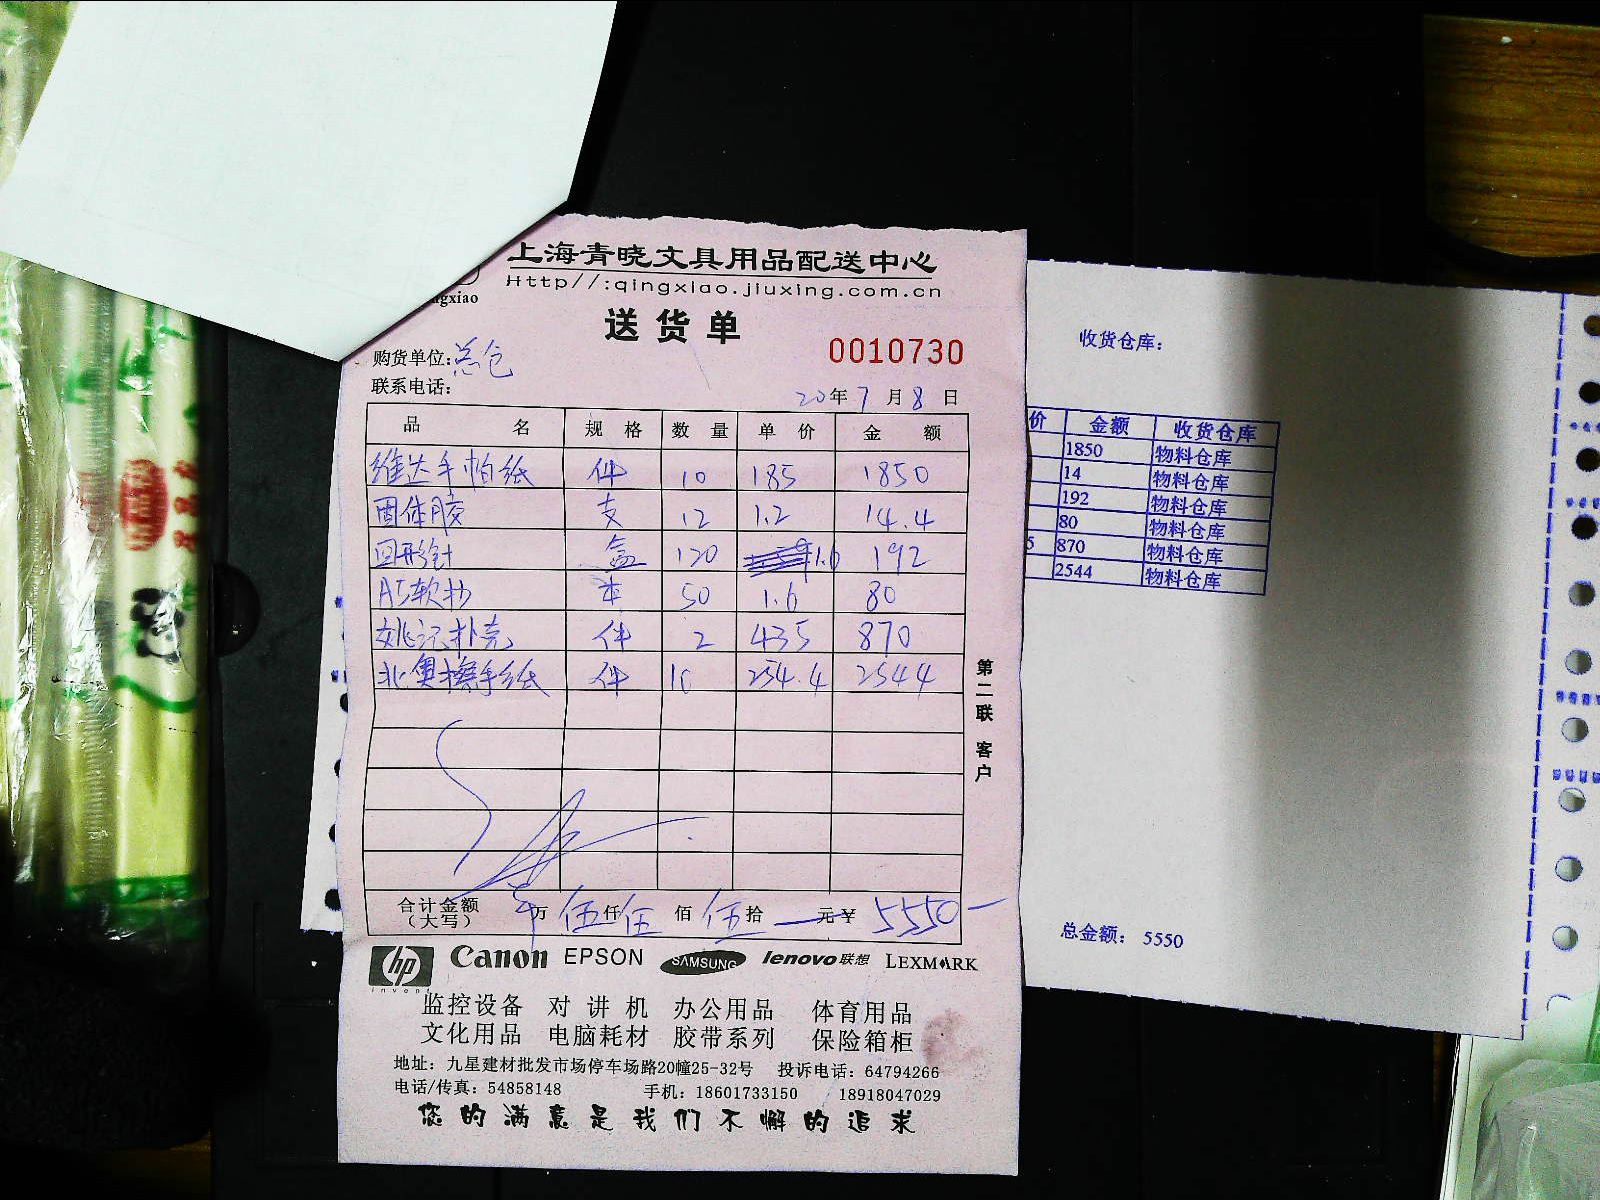 上海青晓文具用品配送中心
Http//:qingxiao.jiuxing.com.cn
gxiao
送货单
0010730
购货单位:总仓
联系电话:
20年7月8日
品 名 规 格 数 量 单 价 金 额
维达手帕纸 件 10 185 1850
固体胶 支 12 1.2 14.4
回形针 盒 120 1.6 192
A5软抄 本 50 1.6 80
姚记扑克 件 2 435 870
北奥擦手纸 件 10 254.4 2544
第二联 客户
合计金额(大写) 万 伍仟伍佰伍拾 元¥ 5550-
hp invent Canon EPSON SAMSUNG lenovo联想 LEXMARK
监控设备 对讲机 办公用品 体育用品
文化用品 电脑耗材 胶带系列 保险箱柜
地址：九星建材批发市场停车场路20幢25-32号 投诉电话：64794266
电话/传真：54858148 手机：18601733150 18918047029
您的满意是我们不懈的追求
收货仓库：
价 金额 收货仓库
1850 物料仓库
14 物料仓库
192 物料仓库
80 物料仓库
5 870 物料仓库
2544 物料仓库
总金额： 5550